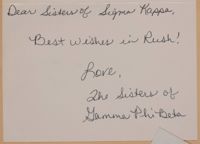 Dear Sisters of Sigma Kappa,
Best Wishes in Rush!
Love,
The Sisters of
Gamma Phi Beta